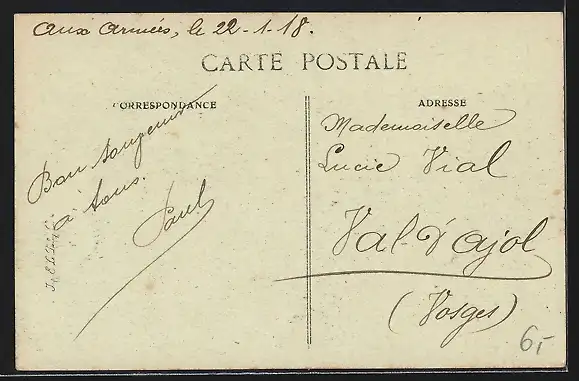 Aux Armées, le 22-1-18.
CARTE POSTALE
CORRESPONDANCE
ADRESSE
Bon souvenir
à tous.
Paul
Mademoiselle
Lucie Vial
Val-d'Ajol
(Vosges)
6,-